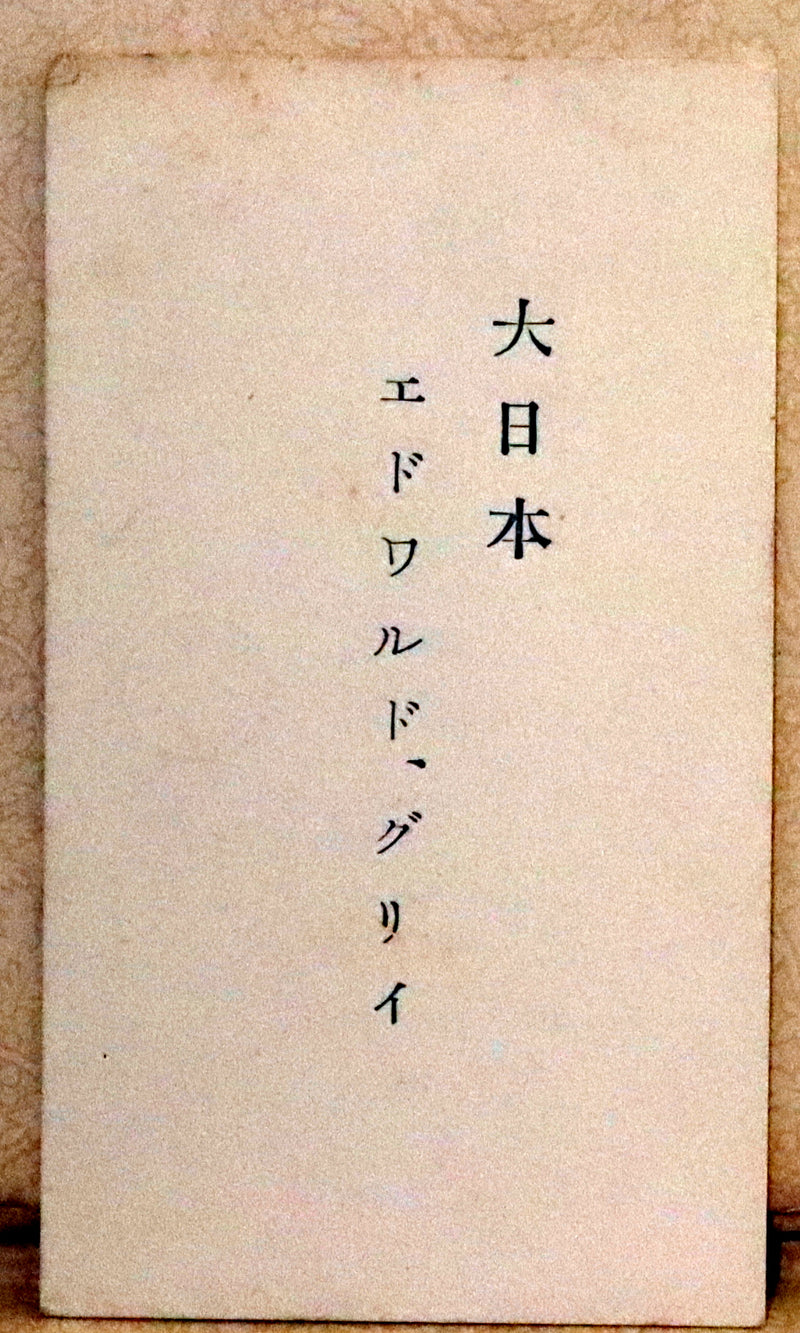 大日本
エドワルド、グリイ